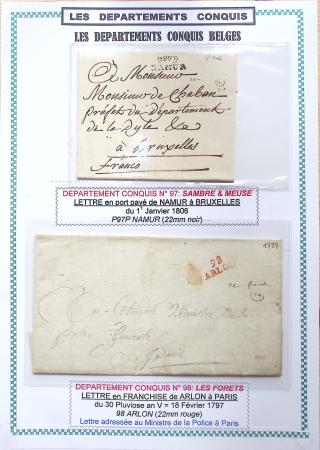 LES DEPARTEMENTS CONQUIS
LES DEPARTEMENTS CONQUIS BELGES
P97P
NAMUR
A Monsieur
Monsieur de Chaban
préfet du Département
de la Dyle &
à Bruxelles
Franco
DEPARTEMENT CONQUIS N° 97: SAMBRE & MEUSE
LETTRE en port payé de NAMUR à BRUXELLES
du 1° Janvier 1806
P97P NAMUR (22mm noir)
1797
98
ARLON
Au Citoyen Ministre de la
DEPARTEMENT CONQUIS N° 98: LES FORETS
LETTRE en FRANCHISE de ARLON à PARIS
du 30 Pluviose an V = 18 Février 1797
98 ARLON (22mm rouge)
Lettre adressée au Ministre de la Police à Paris